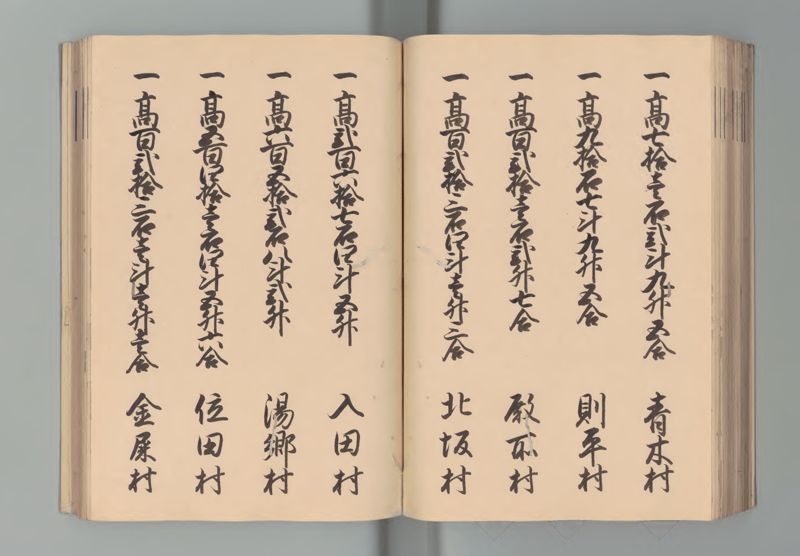 一高七拾壱石弐斗九升五合 青木村
一高九拾石七斗九升五合 則平村
一高百弐拾壱石弐升七合 殿所村
一高百弐拾二石四斗壱升二合 北坂村
一高弐百六拾七石四斗五升 入田村
一高六百五拾弐石八斗弐升 湯郷村
一高五百四拾壱石四斗五升六合 位田村
一高百弐拾二石壱斗壱升壱合 金屎村